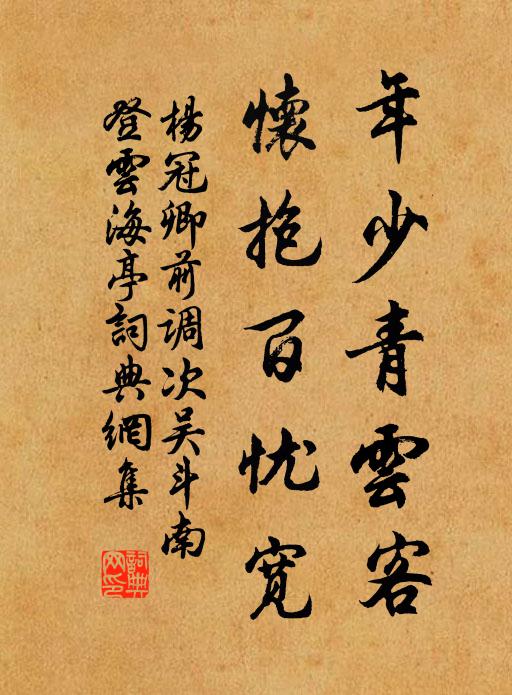 年少青雲客
懷抱百忧寬
楊冠卿前调次吴斗南
登雲海亭詞典網集
詞典
网印